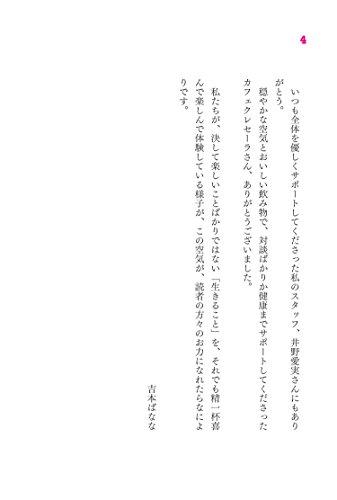 4
いつも全体を優しくサポートしてくださった私のスタッフ、井野愛実さんにもあり
がとう。
穏やかな空気とおいしい飲み物で、対談ばかりか健康までサポートしてくださった
カフェクレセーラさん、ありがとうございました。
私たちが、決して楽しいことばかりではない「生きること」を、それでも精一杯喜
んで楽しんで体験している様子が、この空気が、読者の方々のお力になれたらなによ
りです。
吉本ばなな